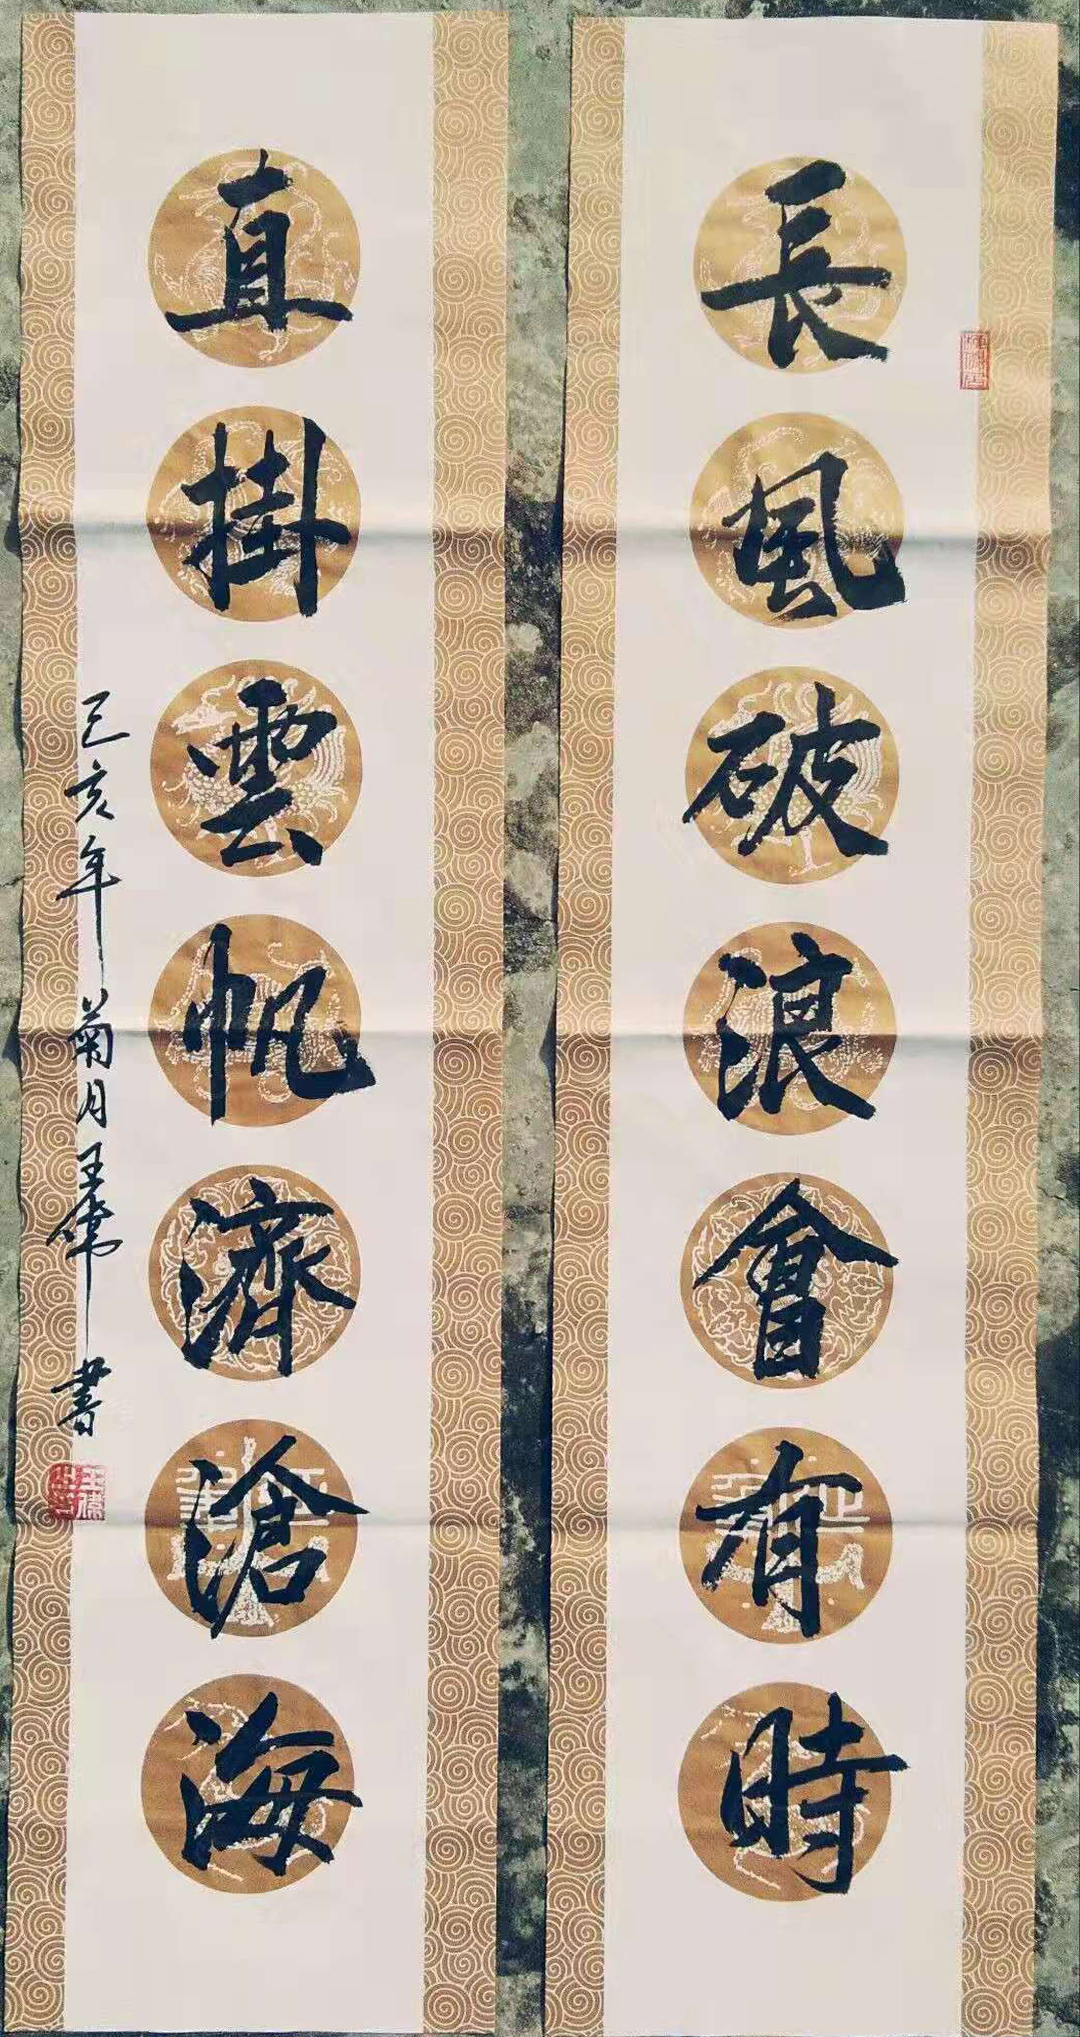 長風破浪會有時
直掛雲帆濟滄海
己亥年菊月王偉書